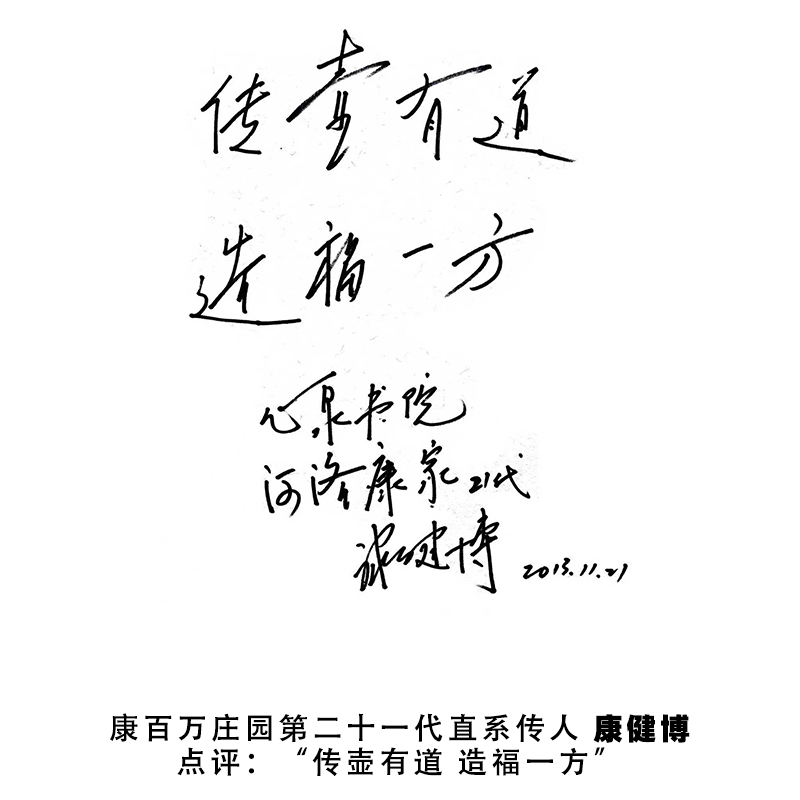 传壶有道
造福一方
心泉书院
河洛康家21代
健博 2013.11.21
康百万庄园第二十一代直系传人 康健博
点评：“传壶有道 造福一方”